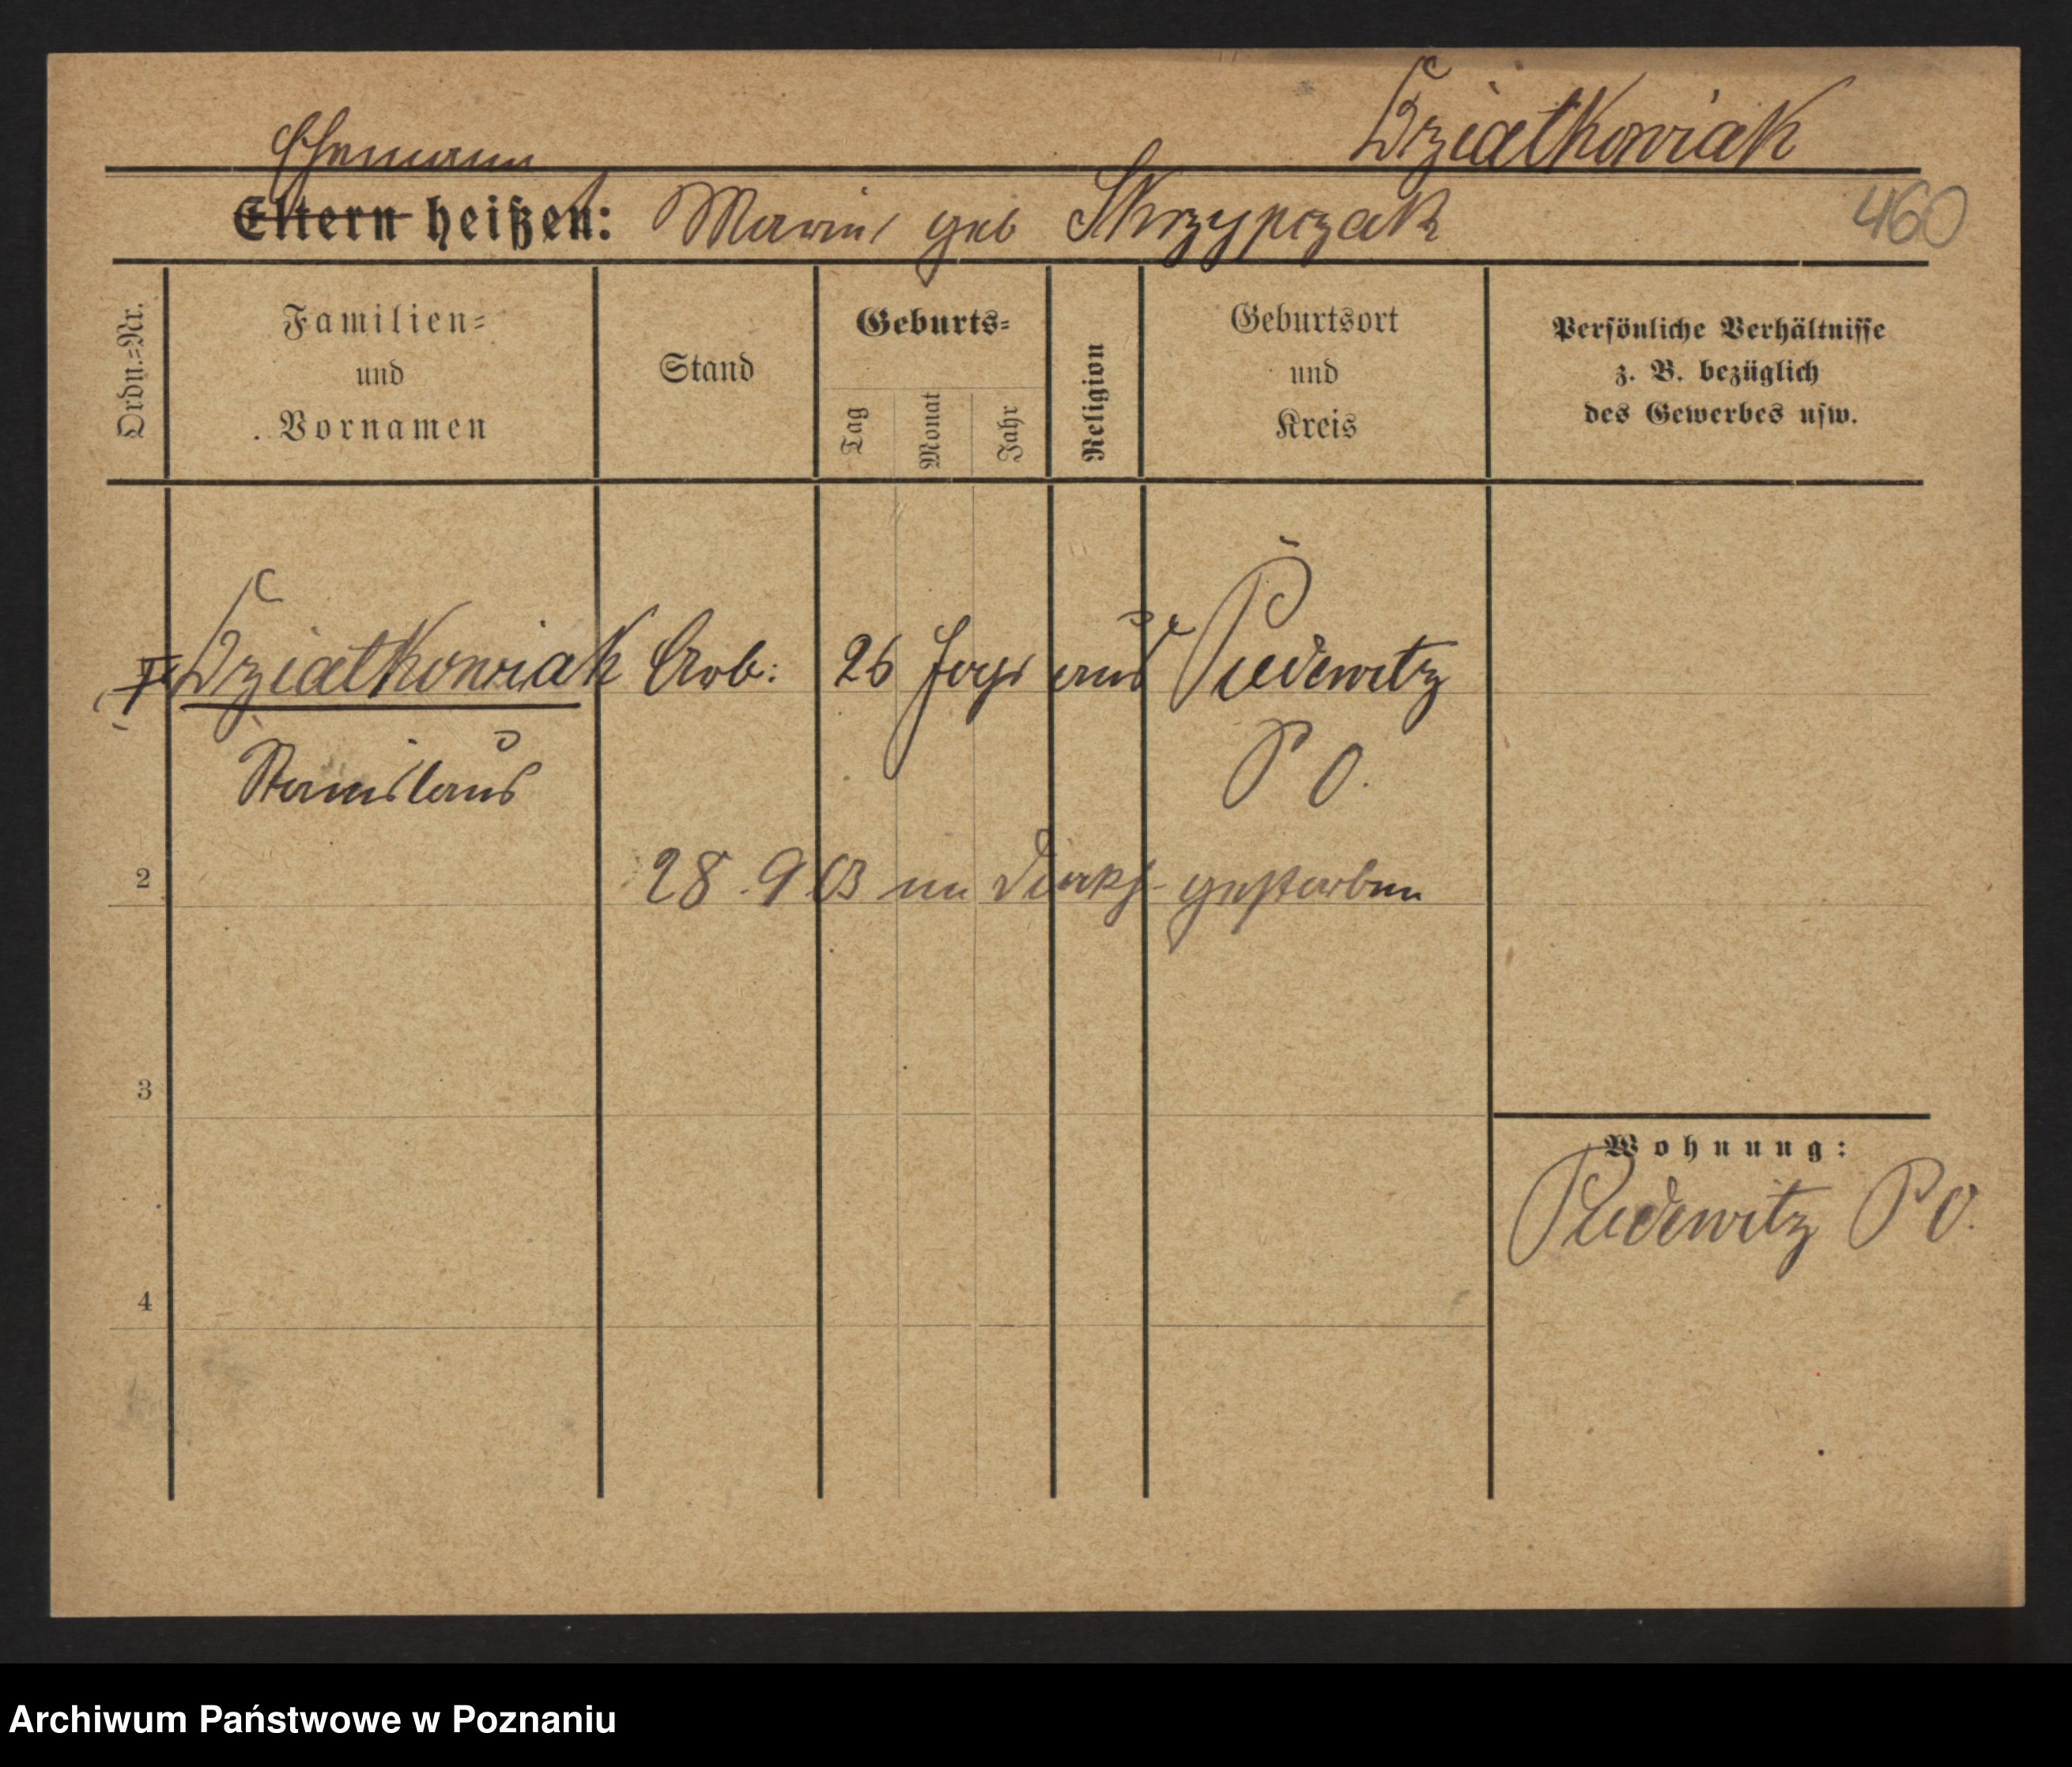 Dziatkowiak
Ehemann
Eltern heißen: Marie geb Skrzypczak
460
Ordn.=Nr.
Familien=
und
Vornamen
Stand
Geburts=
Tag
Monat
Jahr
Religion
Geburtsort
und
Kreis
Persönliche Verhältnisse
z. B. bezüglich
des Gewerbes usw.
Dziatkowiak Arb: 26 Jahr aus Pudewitz
Stanislaus
P O.
2
28.9.03 im gestorben
3
Wohnung:
Pudewitz P O.
4
Archiwum Państwowe w Poznaniu